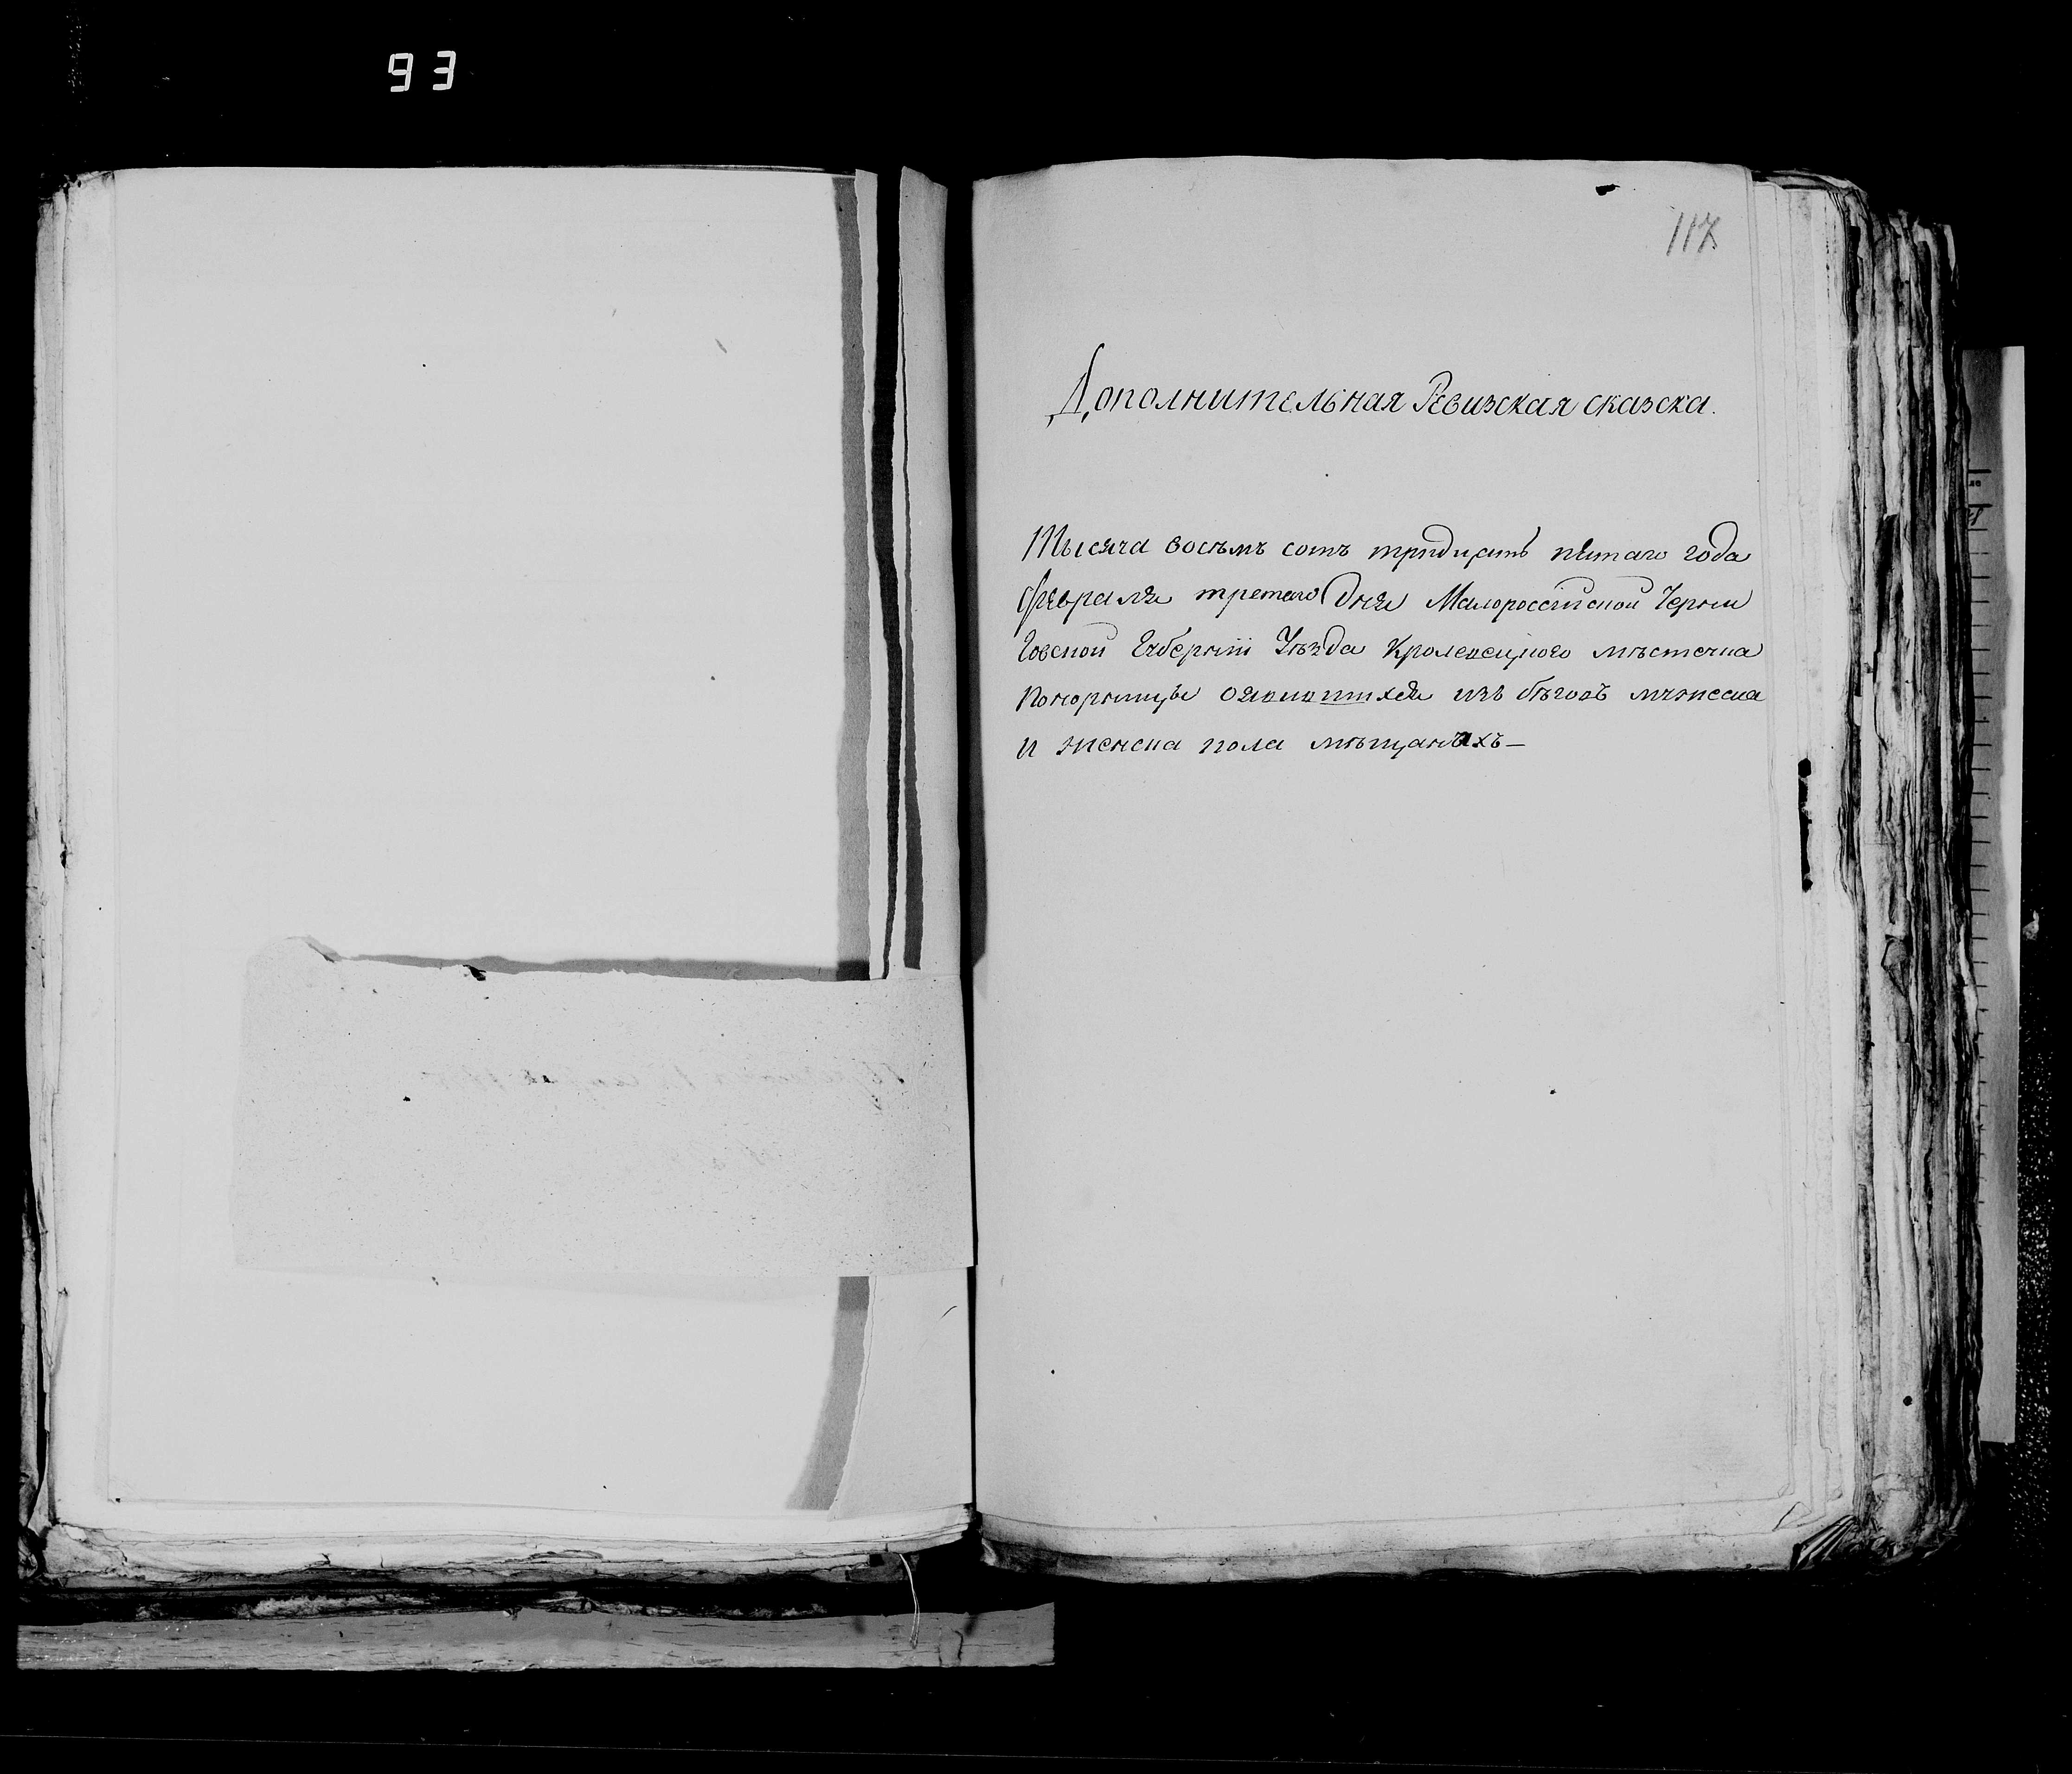 93
117
Дополнительная Ревизская сказска.
Тысяча восемъ сотъ тридцать пятаго года
февраля третаго дня Малороссійской Черни
говской Губерніи Уѣзда Кролевецкого мѣстечка
Понорницы оявившихся изъ бѣговъ мужеска
и женска пола мѣщанахъ—